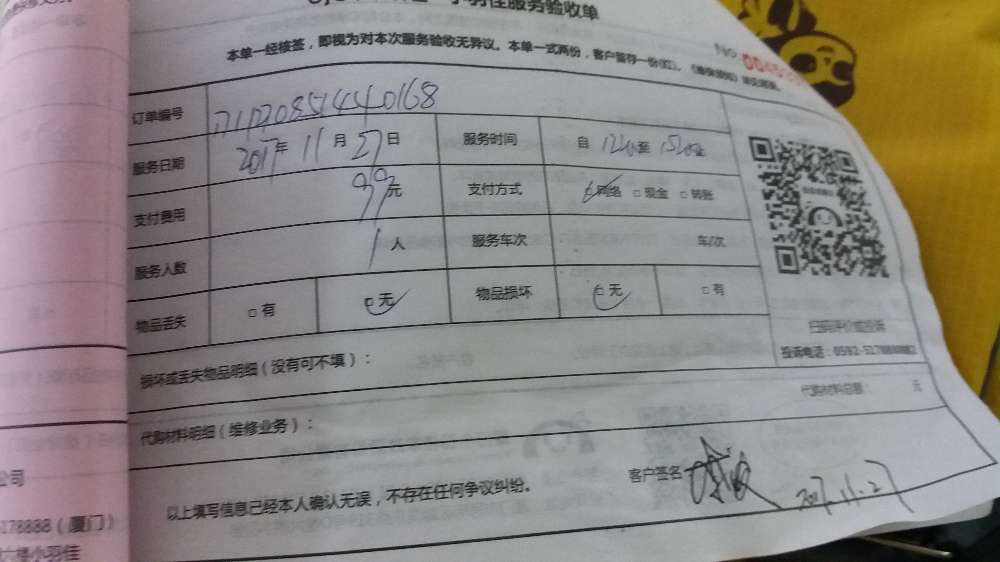 小羽佳服务验收单
本单一经核签，即视为对本次服务验收无异议。本单一式两份，客户留存一份(红)。
No.
订单编号
服务日期 2017年 11月 27日 服务时间 自 至
支付费用 99元 支付方式 网络 □ 现金 □ 转账
服务人数 1人 服务车次 车/次
物品丢失 □ 有 □ 无 物品损坏 □ 无 □ 有
扫码评价或投诉
损坏或丢失物品明细（没有可不填）：
投诉电话：0592-5178888
代购材料明细（维修业务）： 代购材料总额： 元
以上填写信息已经本人确认无误，不存在任何争议纠纷。 客户签名 2017.11.27
公司
5178888（厦门）
六楼小羽佳